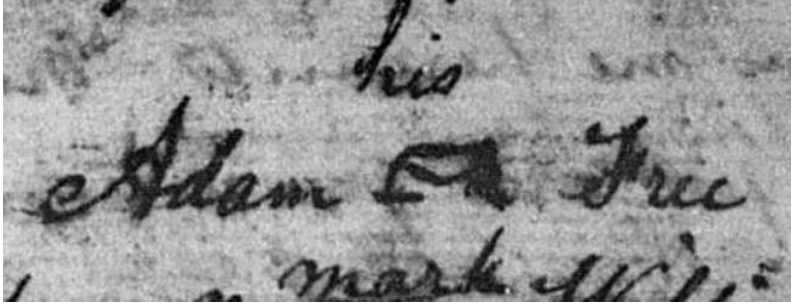 his
Adam Free
mark